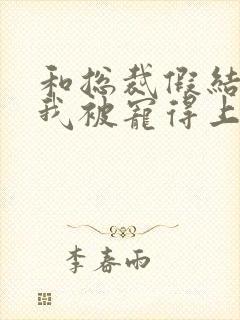 和总裁假结
我被宠得上
李春雨